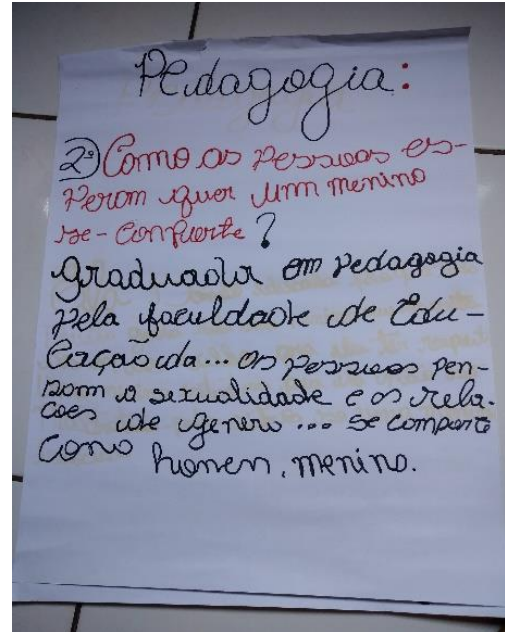 Pedagogia:
2º Como as Pessoas es-
Peram quer umm menino
se-comporte?
Graduada em Pedagogia
Pela faculdade de Edu-
Cação da... as pessoas pen-
som a sexualidade e as rela-
coes de genero... se comporte
Como homen, menino.